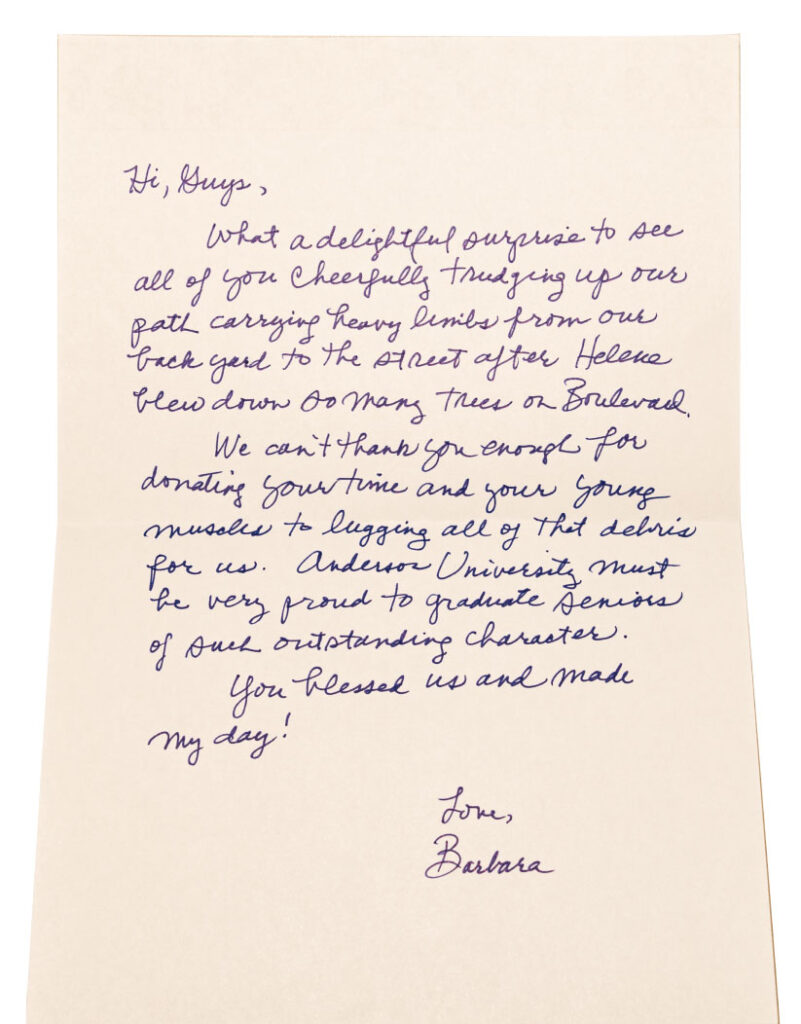 Hi, Guys,
What a delightful surprise to see
all of you cheerfully trudging up our
path carrying heavy limbs from our
back yard to the street after Helene
blew down so many trees on Boulevard.
We can't thank you enough for
donating your time and your young
muscles to lugging all of that debris
for us. Anderson University must
be very proud to graduate seniors
of such outstanding character.
You blessed us and made
my day!
Love,
Barbara